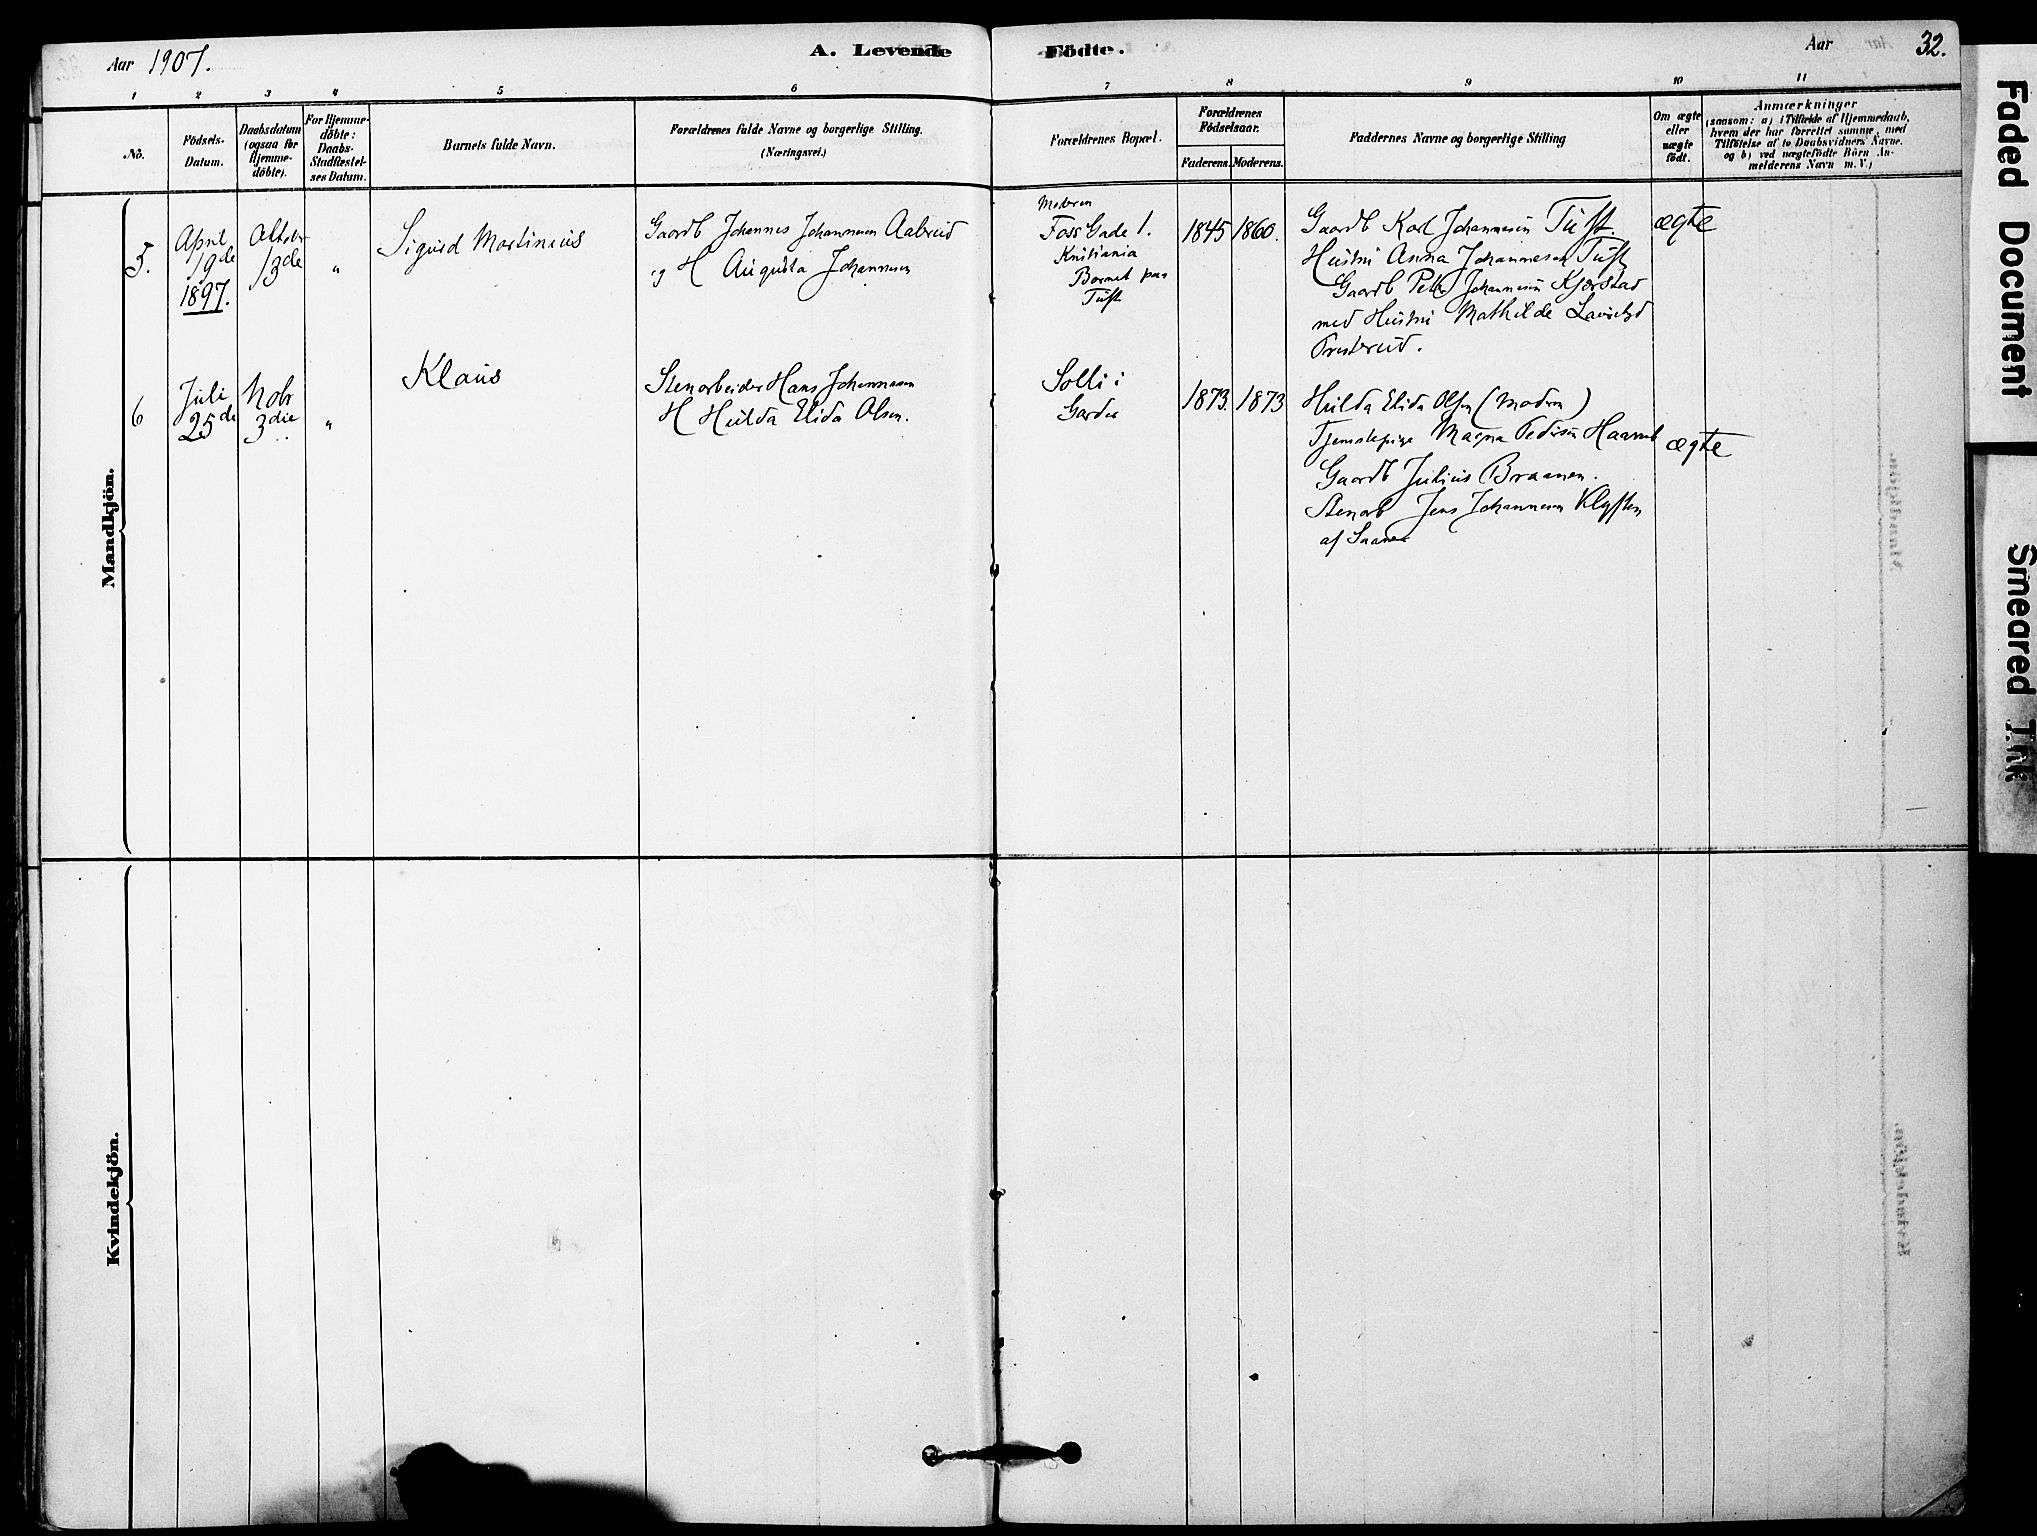 Aar 1907.
A. Levende Födte.
Aar
32.
1 2 3 4 5 6 7 8 9 10 11
No.
Födsels-
Datum.
Daabsdatum
(ogsaa for
Hjemme-
döbte).
For Hjemme-
döbte:
Daabs-
Stadfæstel-
ses Datum.
Barnets fulde Navn.
Forældrenes fulde Navne og borgerlige Stilling.
(Næringsvei.)
Forældrenes Bopæl.
Forældrenes
Födselsaar.
Faderens. Moderens.
Faddernes Navne og borgerlige Stilling
Om ægte
eller
uægte
födt.
Anmærkninger
(saasom: a) i Tilfælde af Hjemmedaab,
hvem der har forrettet samme, med
Tilföielse af to Daabsvidners Navne.
og b) ved uægtefödte Börn An-
melderens Navn m. V.)
Mandkjön.
5.
April
19de
1897.
Oktober
13de
"
Sigurd Martinius
Gaardb Johannes Johannesen Aabrud
og H Augusta Johannesen
Moderen
Foss Gade 1.
Kristiania
Barnet paa
Tuft
1845 1860.
Gaardb Karl Johannesen Tuft.
Hustru Anna Johannesen Tuft
Gaardb Peter Johannesen Kjærstad
med Hustru Mathilde
Presterud.
ægte
6
Juli
25de
Nobr
3die
"
Klaus
Stenarbeider Hans Johannesen
H Hulda Elida Olsen.
Solli i
Garder
1873. 1873
Hulda Elida Olsen (Modren)
Tjenestepige Magna Pedersen
Gaardb Julius Braanen.
Stenarb Jens Johannesen Klyften
af Saaner
ægte
Kvindekjön.
Faded Document
Smeared Ink